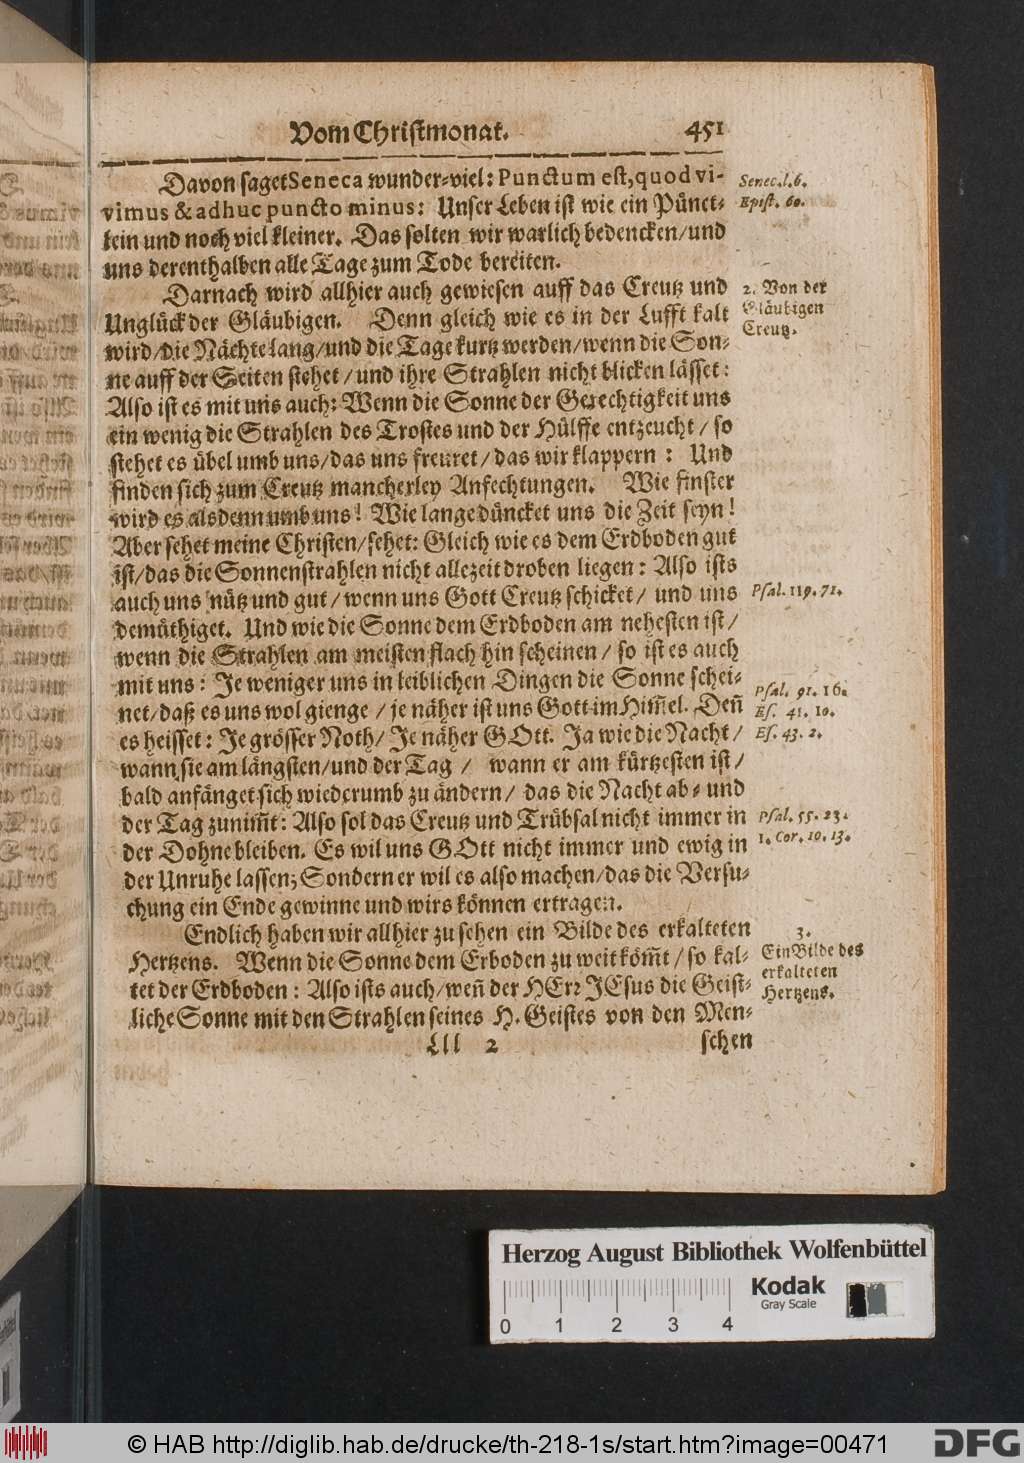 Vom Christmonat. 451
Davon saget Seneca wunder-viel: Punctum est, quod vi-
vimus & adhuc puncto minus: Unser Leben ist wie ein Pünct-
lein und noch viel kleiner. Das solten wir warlich bedencken/und
uns derenthalben alle Tage zum Tode bereiten.
Senec. l. 6.
Epist. 60.
Darnach wird allhier auch gewiesen auff das Creutz und
Unglück der Gläubigen. Denn gleich wie es in der Lufft kalt
wird/die Nächte lang/und die Tage kurtz werden/wenn die Son-
ne auff der Seiten stehet/und ihre Strahlen nicht blicken lässet:
Also ist es mit uns auch: Wenn die Sonne der Gerechtigkeit uns
ein wenig die Strahlen des Trostes und der Hülffe entzeucht/so
stehet es übel umb uns/das uns freuret/das wir klappern: Und
finden sich zum Creutz mancherley Anfechtungen. Wie finster
wird es alsdenn umb uns! Wie lange düncket uns die Zeit seyn!
Aber sehet meine Christen/sehet: Gleich wie es dem Erdboden gut
ist/das die Sonnenstrahlen nicht allezeit droben liegen: Also ists
auch uns nütz und gut/wenn uns Gott Creutz schicket/und uns
demüthiget. Und wie die Sonne dem Erdboden am nehesten ist/
wenn die Strahlen am meisten flach hin scheinen/so ist es auch
mit uns: Je weniger uns in leiblichen Dingen die Sonne schei-
net/daß es uns wol gienge/je näher ist uns Gott im Him̃el. Deñ
es heisset: Je grösser Noth/Je näher GOtt. Ja wie die Nacht/
wann sie am längsten/und der Tag/ wann er am kürtzesten ist/
bald anfänget sich wiederumb zu ändern/das die Nacht ab- und
der Tag zunim̃t: Also sol das Creutz und Trübsal nicht immer in
der Dohne bleiben. Es wil uns GOtt nicht immer und ewig in
der Unruhe lassen; Sondern er wil es also machen/das die Versu-
chung ein Ende gewinne und wirs können ertragen.
2. Von der
Gläubigen
Creutz.
Psal. 119. 71.
Psal. 91. 16.
Es. 41. 10.
Es. 43. 2.
Psal. 55. 23.
1. Cor. 10. 13.
Endlich haben wir allhier zu sehen ein Bilde des erkalteten
Hertzens. Wenn die Sonne dem Erboden zu weit köm̃t/so kal-
tet der Erdboden: Also ists auch/weñ der HErr JEsus die Geist-
liche Sonne mit den Strahlen seines H. Geistes von den Men-
3.
Ein Bilde des
erkalteten
Hertzens.
Lll 2 schen
Herzog August Bibliothek Wolfenbüttel
Kodak
Gray Scale
0 1 2 3 4
© HAB http://diglib.hab.de/drucke/th-218-1s/start.htm?image=00471
DFG